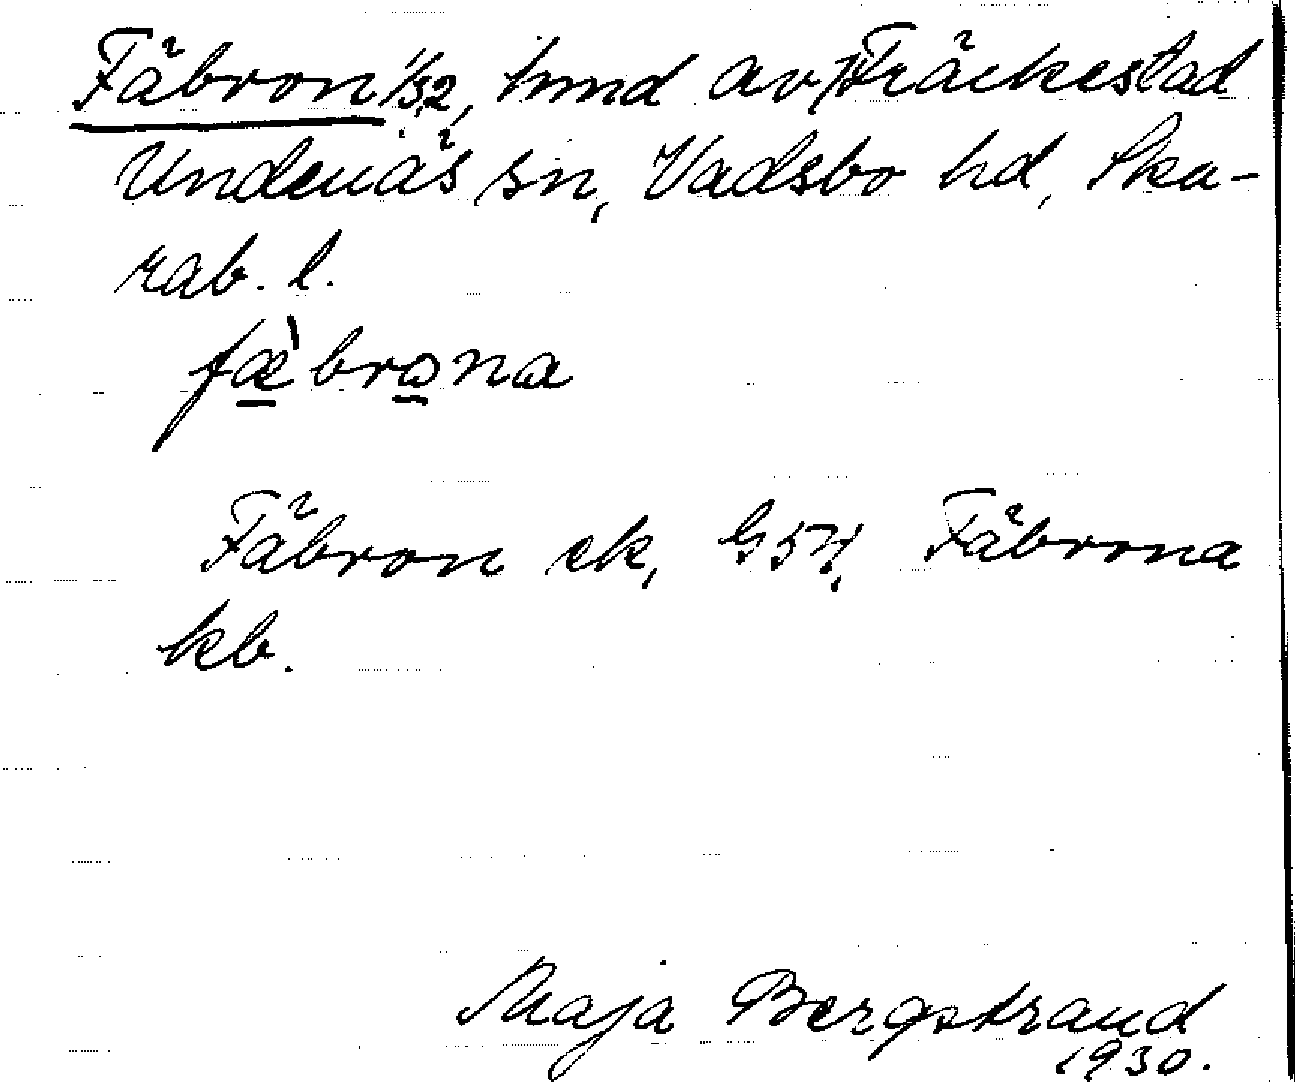 Fäbron 1/32, hmd av Fräckestad
Undenäs sn, Vadsbo hd, Ska-
rab. l.
fæ̀brona
Fäbron ek, G 54, Fäbrona
kb.
Maja Bergstrand
1930.